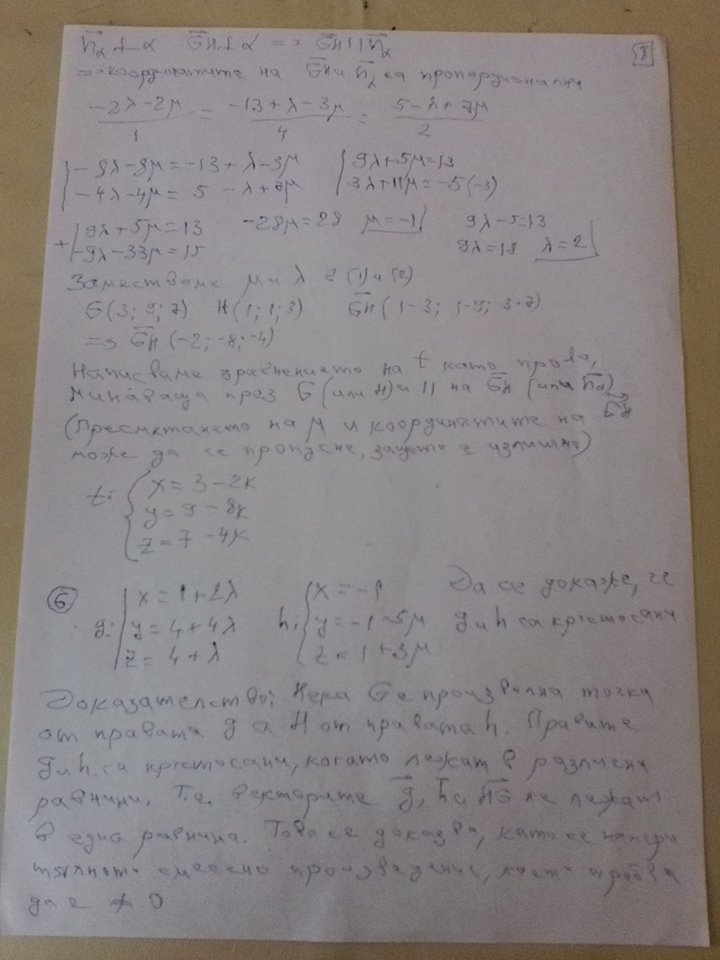 n⃗α ⊥ α   G⃗H ⊥ α => G⃗H || n⃗α   8
=> координатите на G⃗H и n⃗α са пропорционални
(-2λ-2μ)/1 = (-13+λ-3μ)/4 = (5-λ+7μ)/2
|-8λ-8μ=-13+λ-3μ   |9λ+5μ=13
|-4λ-4μ=5-λ+7μ   |3λ+11μ=-5 (-3)
+|9λ+5μ=13   -28μ=28   μ=-1   9λ-5=13
|-9λ-33μ=15   9λ=18   λ=2
Заместваме μ и λ в (1) и (2)
G(3; 9; 7)   H(1; 1; 3)   G⃗H(1-3; 1-9; 3-7)
=> G⃗H(-2; -8; -4)
Написваме уравнението на t като права,
минаваща през G (или H) и || на G⃗H (или n⃗α)
(Пресмятането на μ и координатите на G⃗H
може да се пропусне, защото е излишно)
t: { x = 3 - 2k
y = 9 - 8k
z = 7 - 4k
6   g: | x = 1 + 2λ   h: | x = -1   Да се докаже, че
y = 4 + 4λ   y = -1 - 5μ   g и h са кръстосани
z = 4 + λ   z = 1 + 3μ
Доказателство: Нека G е произволна точка
от правата g а H от правата h. Правите
g и h са кръстосани, когато лежат в различни
равнини. Т.е. векторите g⃗, h⃗ и H⃗G не лежат
в една равнина. Това се доказва, като се намери
тяхното смесено произведение, което трябва
да е ≠ 0